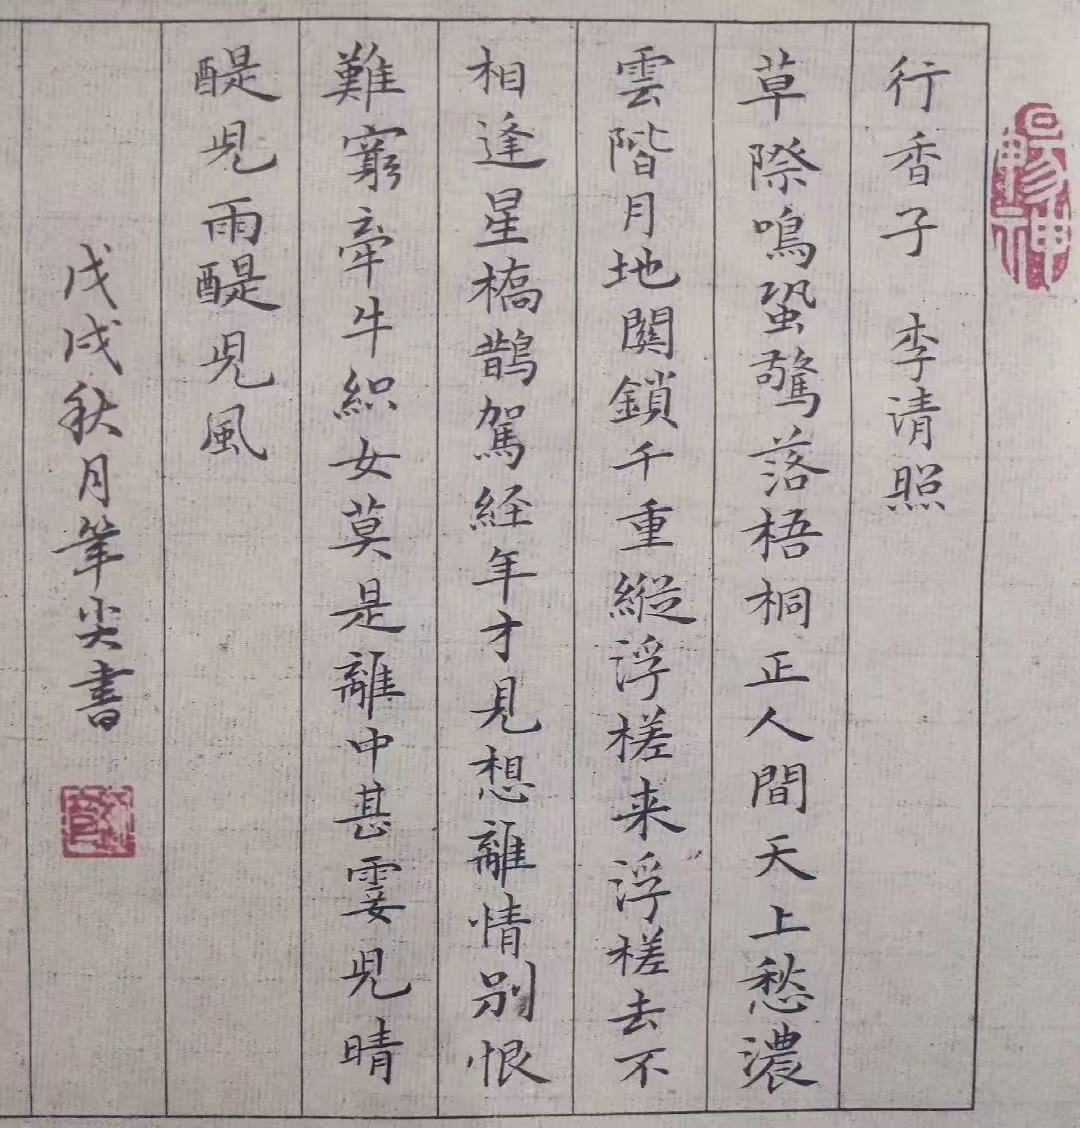 行香子 李清照
草際鳴蛩驚落梧桐正人間天上愁濃
雲階月地關鎖千重縱浮槎来浮槎去不
相逢星橋鵲駕経年才見想離情别恨
難窮牽牛織女莫是離中甚霎兒晴
醍兒雨醍兒風
戊戌秋月筆尖書